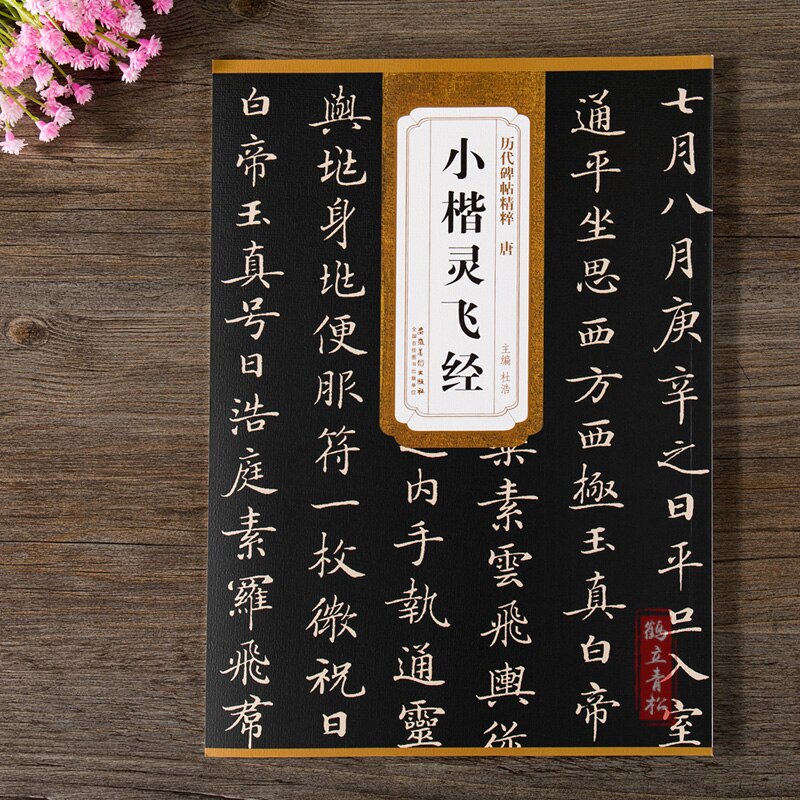 历代碑帖精粹 唐
小楷灵飞经
主编 杜浩
安徽美术出版社
全国百佳图书出版单位
七月八月庚辛之日平旦入室
通平坐思西方西極玉真白帝
素雲飛輿從
内手執通靈
與㘯身㘯便服符一枚微祝日
白帝玉真号日浩庭素羅飛帬
鹤立青松